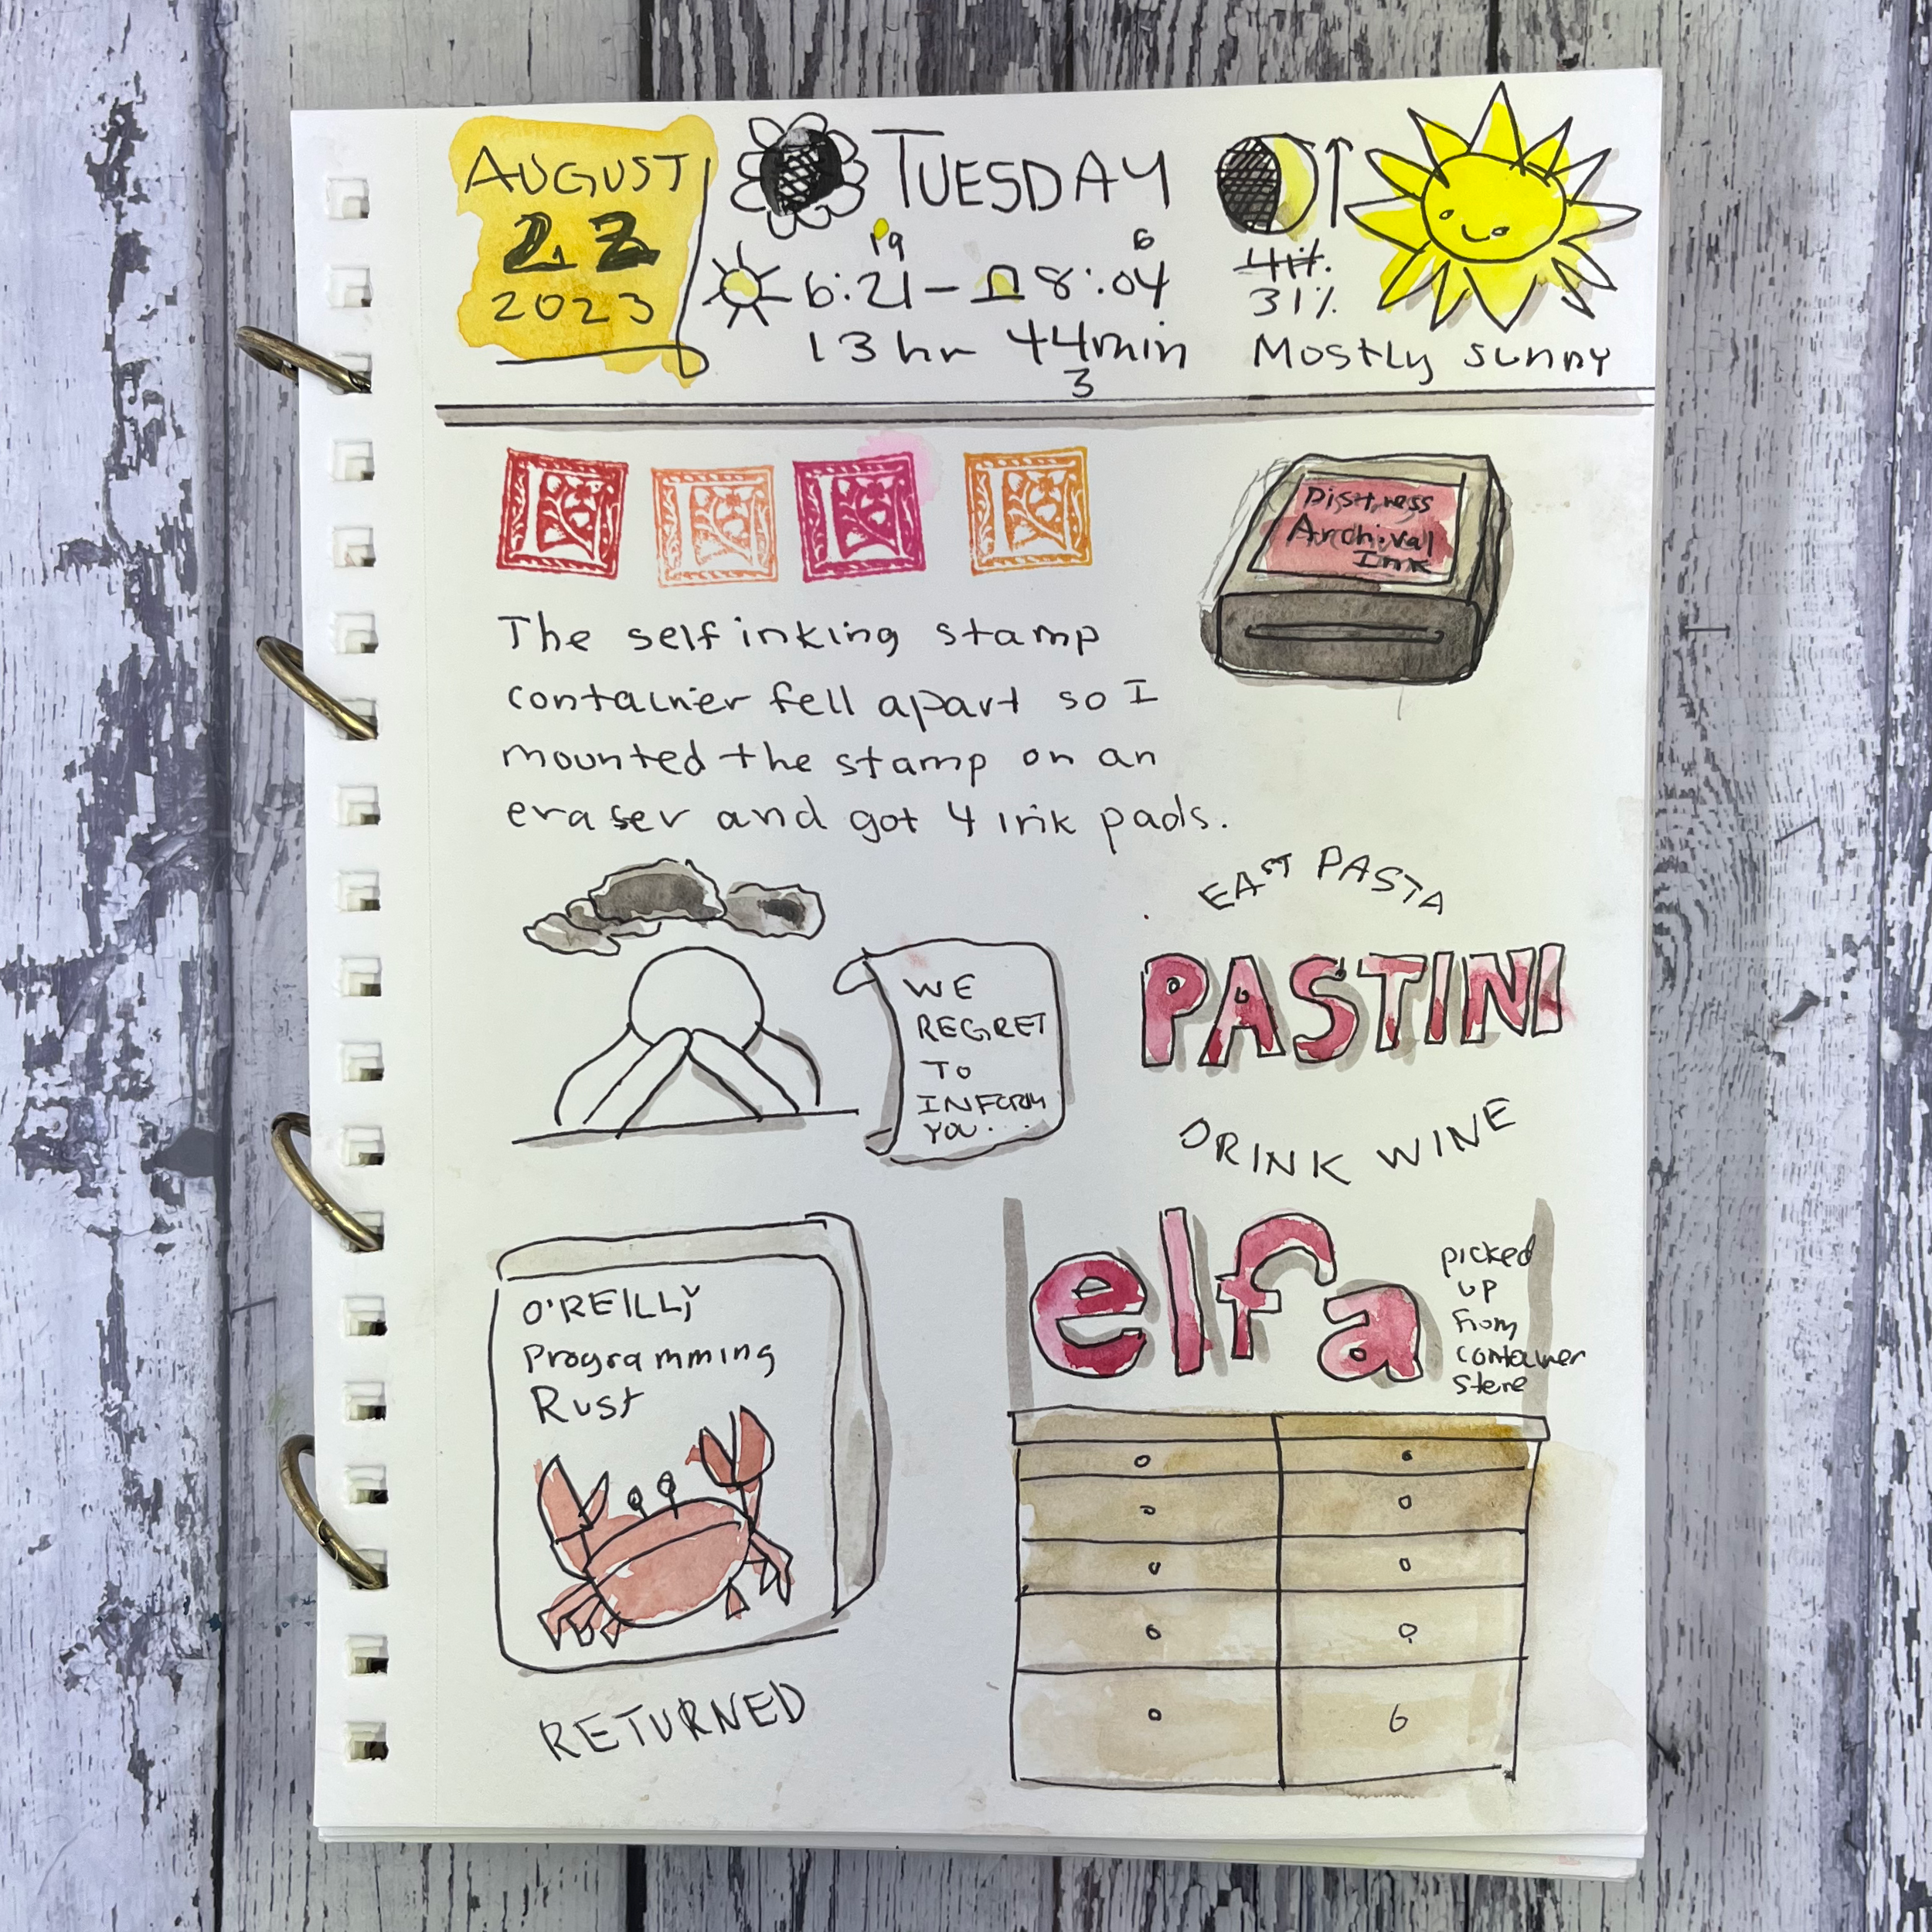 AUGUST
22
2023
TUESDAY
19
6
6:21 - 8:04
13 hr 44min
3
41%
31%
Mostly sunny
Distress
Archival
Ink
The self inking stamp
container fell apart so I
mounted the stamp on an
eraser and got 4 ink pads.
WE
REGRET
TO
INFORM
YOU...
EAST PASTA
PASTINI
DRINK WINE
O'REILLY
Programming
Rust
RETURNED
elfa
picked
up
from
container
store